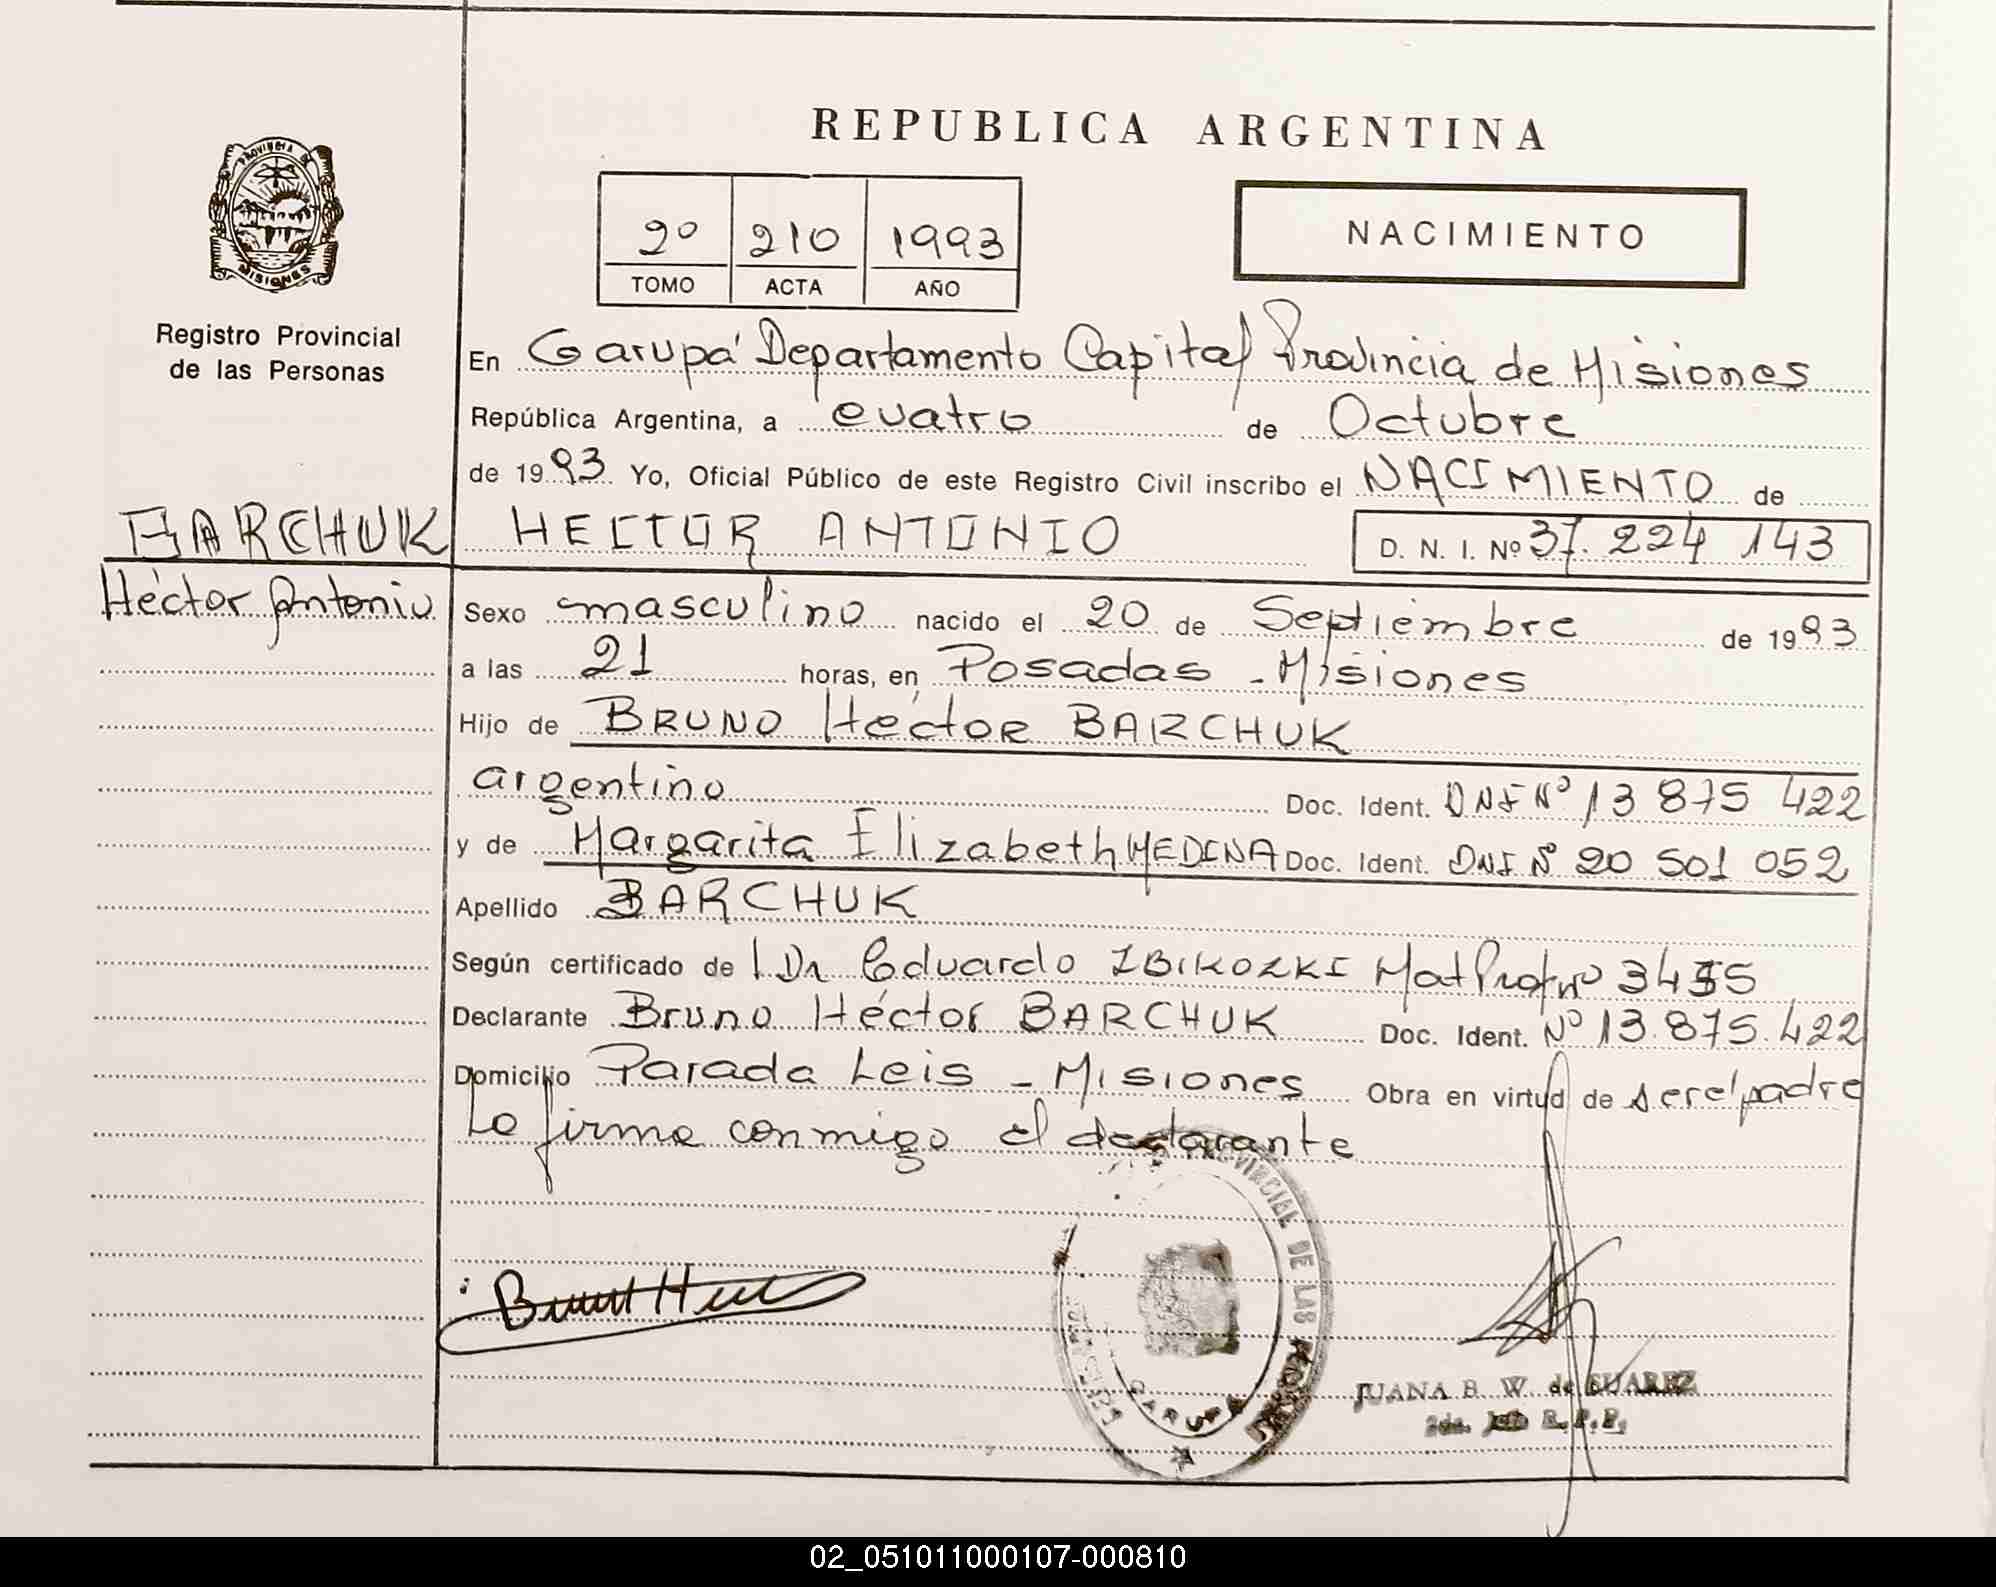 REPUBLICA ARGENTINA
PROVINCIA DE
MISIONES
Registro Provincial
de las Personas
2º 210 1993
TOMO ACTA AÑO
NACIMIENTO
En Garupá Departamento Capital Provincia de Misiones
República Argentina, a cuatro de Octubre
de 1993 Yo, Oficial Público de este Registro Civil inscribo el NACIMIENTO de
BARCHUK
Héctor Antonio
HECTOR ANTONIO D. N. I. Nº 37.224 143
Sexo masculino nacido el 20 de Septiembre de 1993
a las 21 horas, en Posadas - Misiones
Hijo de BRUNO Héctor BARCHUK
argentino Doc. Ident. DNI Nº 13 875 422
y de Margarita Elizabeth MEDINA Doc. Ident. DNI Nº 20 501 052
Apellido BARCHUK
Según certificado de Dr Eduardo ZBIKOZKI Mat Prof Nº
Declarante Bruno Héctor BARCHUK Doc. Ident. Nº 13.875.422
Domicilio Parada Leis - Misiones Obra en virtud de ser el padre
Lo firma conmigo el declarante
DE LAS
GARUPA
JUANA B. W. de SUAREZ
R.P.P.
02_051011000107-000810